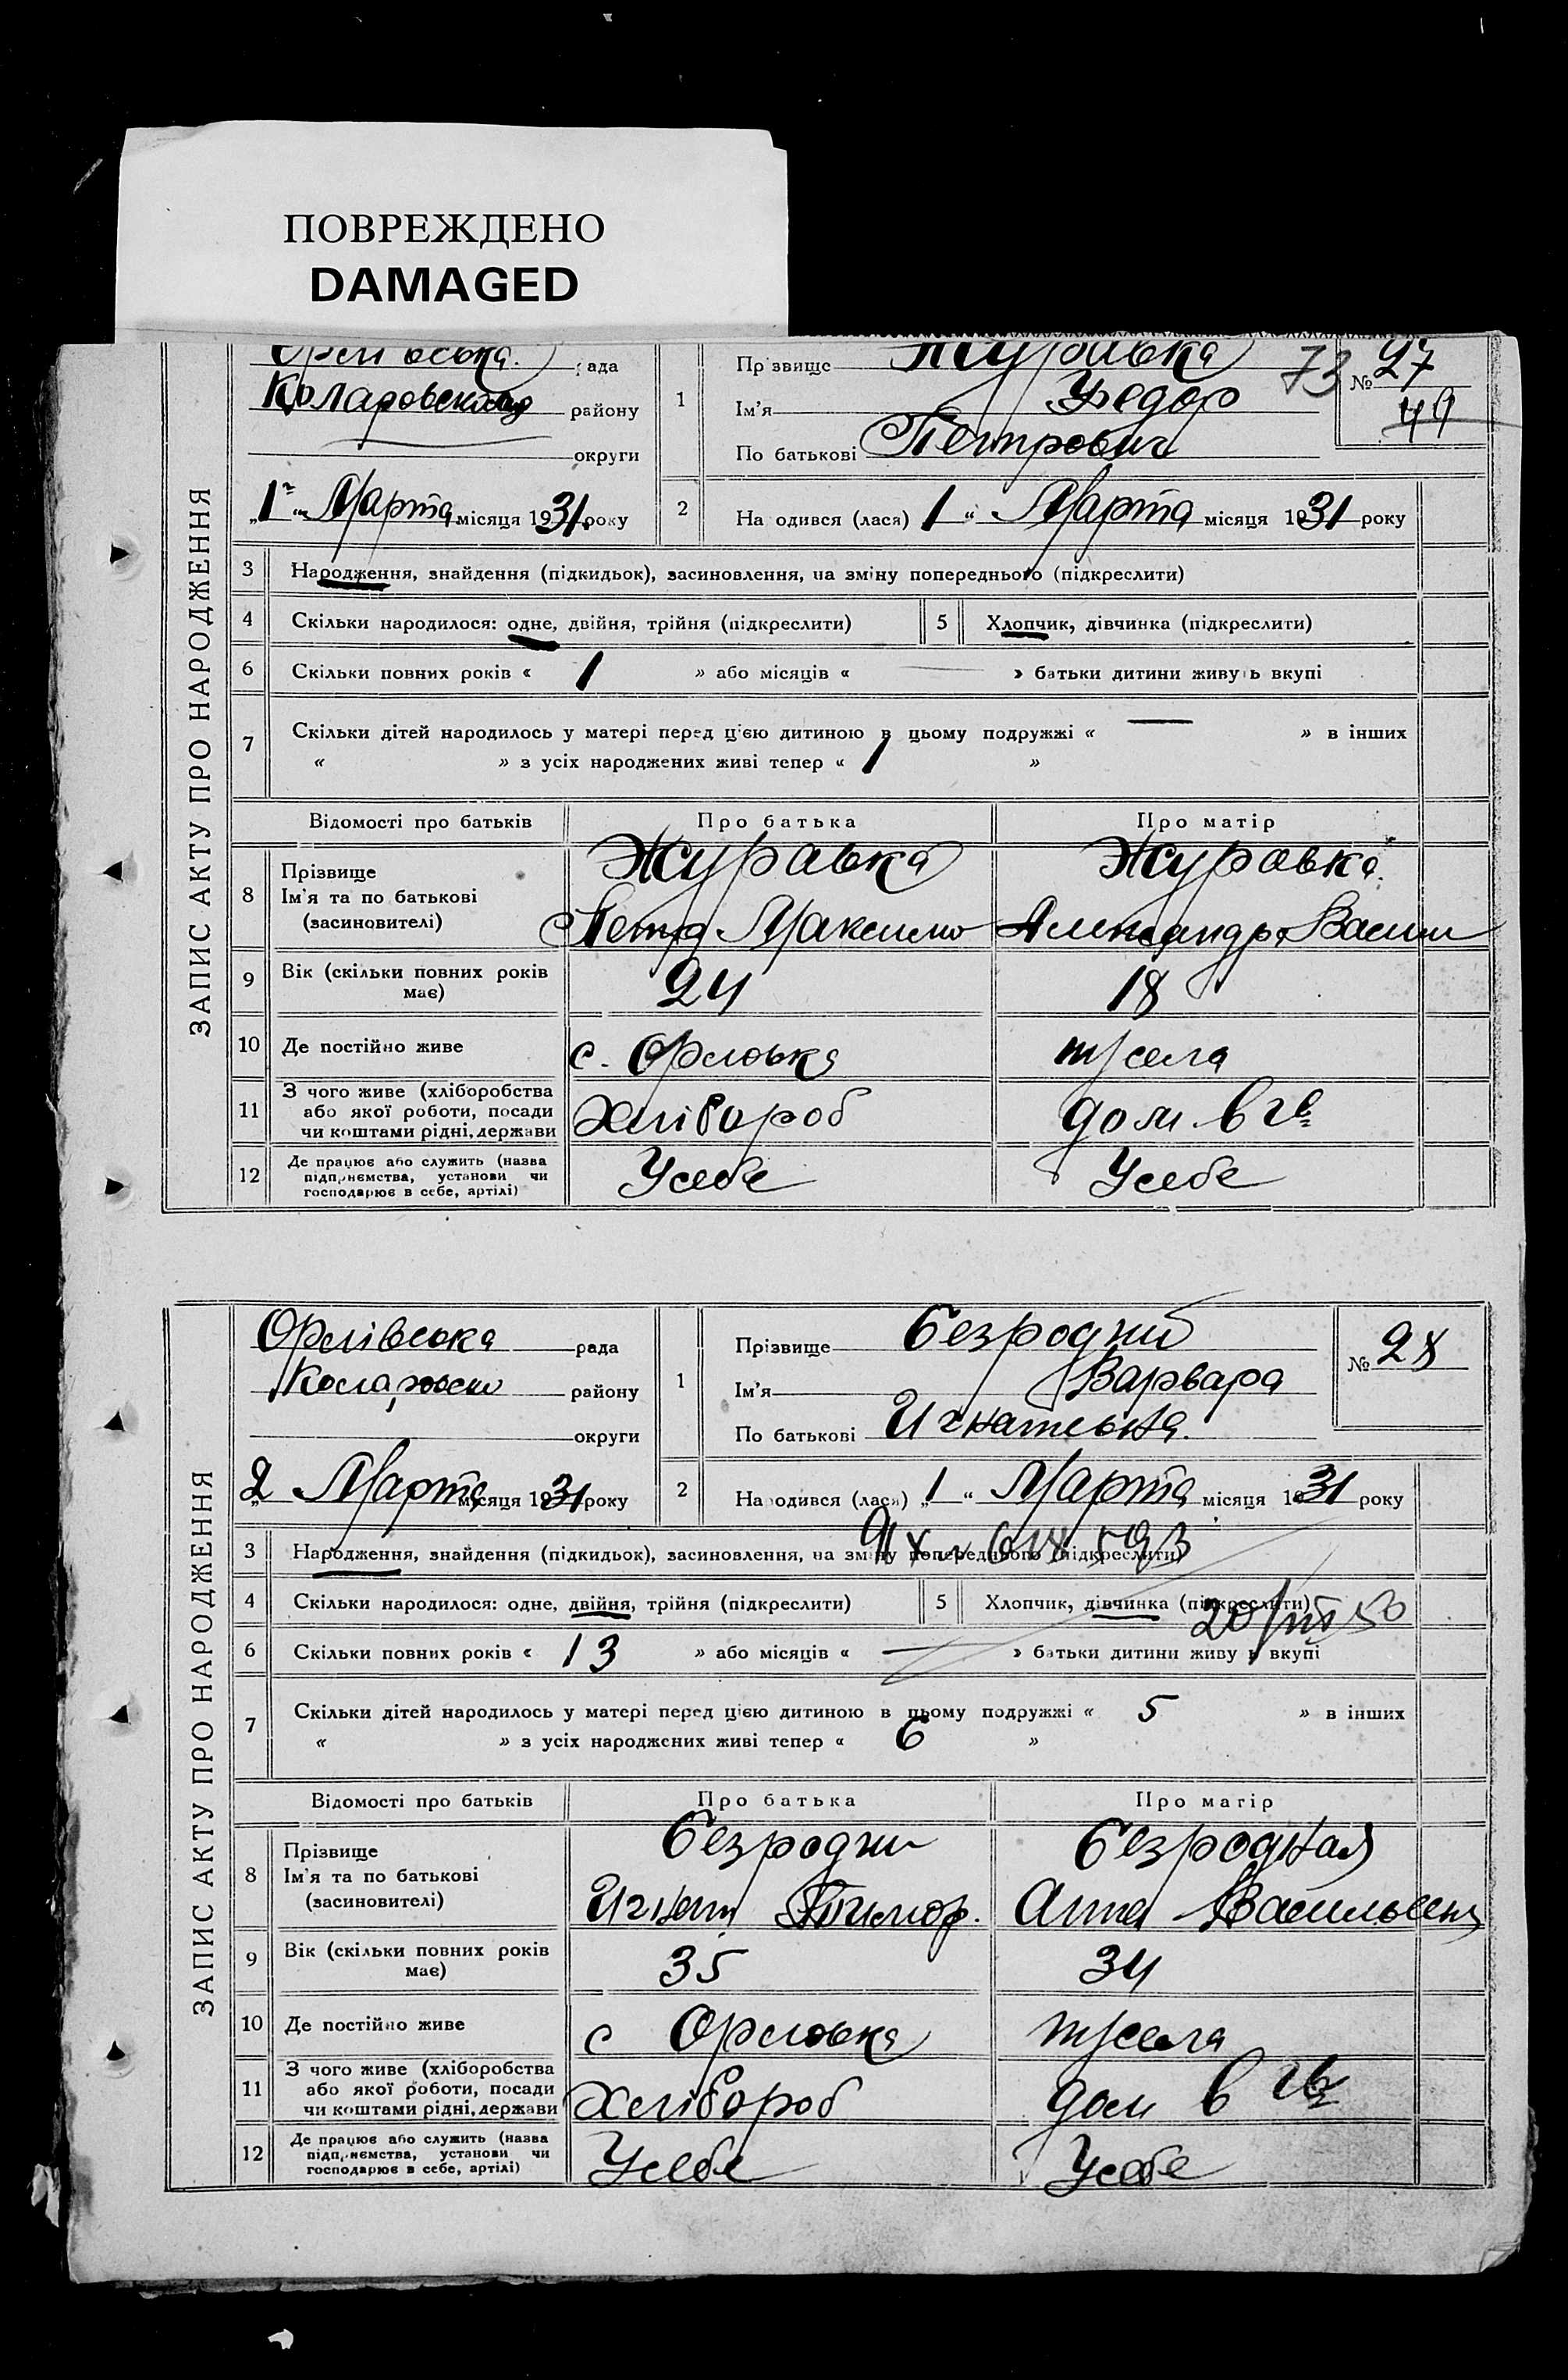 ПОВРЕЖДЕНО
DAMAGED
ЗАПИС АКТУ ПРО НАРОДЖЕННЯ
Орлівська рада
Коларовский району
округи
„1“ Марта місяця 1931 року
1
Прізвище Журавка
Ім'я Федор
По батькові Петрович
73 № 27
49
2 На одився (лася) 1 “ Марта місяця 1931 року
3 Народження, знайдення (підкидьок), засиновлення, на зміну попереднього (підкреслити)
4 Скільки народилося: одне, двійня, трійня (підкреслити) 5 Хлопчик, дівчинка (підкреслити)
6 Скільки повних років « 1 » або місяців « — » батьки дитини живуть вкупі
7 Скільки дітей народилось у матері перед цією дитиною в цьому подружжі « — » в інших
« » з усіх народжених живі тепер « 1 »
Відомості про батьків Про батька Про матір
8 Прізвище
Ім'я та по батькові
(засиновителі)
Журавка Журавка
Петр Максимо Александра Васили
9 Вік (скільки повних років має) 24 18
10 Де постійно живе с. Орловка т/села
11 З чого живе (хліборобства
або якої роботи, посади
чи коштами рідні, держави
Хлібороб дом в гв
12 Де працює або служить (назва
підприємства, установи чи
господарює в себе, артілі)
Усебе Усебе
ЗАПИС АКТУ ПРО НАРОДЖЕННЯ
Орлівська рада
району
округи
„2 Марта місяця 1931 року
1
Прізвище Безродний
Ім'я Варвара
По батькові Игнатьевна
№ 28
2 Народився (лася) „1“ Марта місяця 1931 року
3 Народження, знайдення (підкидьок), засиновлення, на зміну попереднього (підкреслити)
4 Скільки народилося: одне, двійня, трійня (підкреслити) 5 Хлопчик, дівчинка (підкреслити)
6 Скільки повних років « 13 » або місяців « — » батьки дитини живуть вкупі
7 Скільки дітей народилось у матері перед цією дитиною в цьому подружжі « 5 » в інших
« » з усіх народжених живі тепер « 6 »
Відомості про батьків Про батька Про матір
8 Прізвище
Ім'я та по батькові
(засиновителі)
Безродни Безродная
Игнат Тимоф. Анна Васильевна
9 Вік (скільки повних років має) 35 34
10 Де постійно живе с Орловка т/села
11 З чого живе (хліборобства
або якої роботи, посади
чи коштами рідні, держави
Хлібороб дом в гв
12 Де працює або служить (назва
підприємства, установи чи
господарює в себе, артілі)
Усебе Усебе